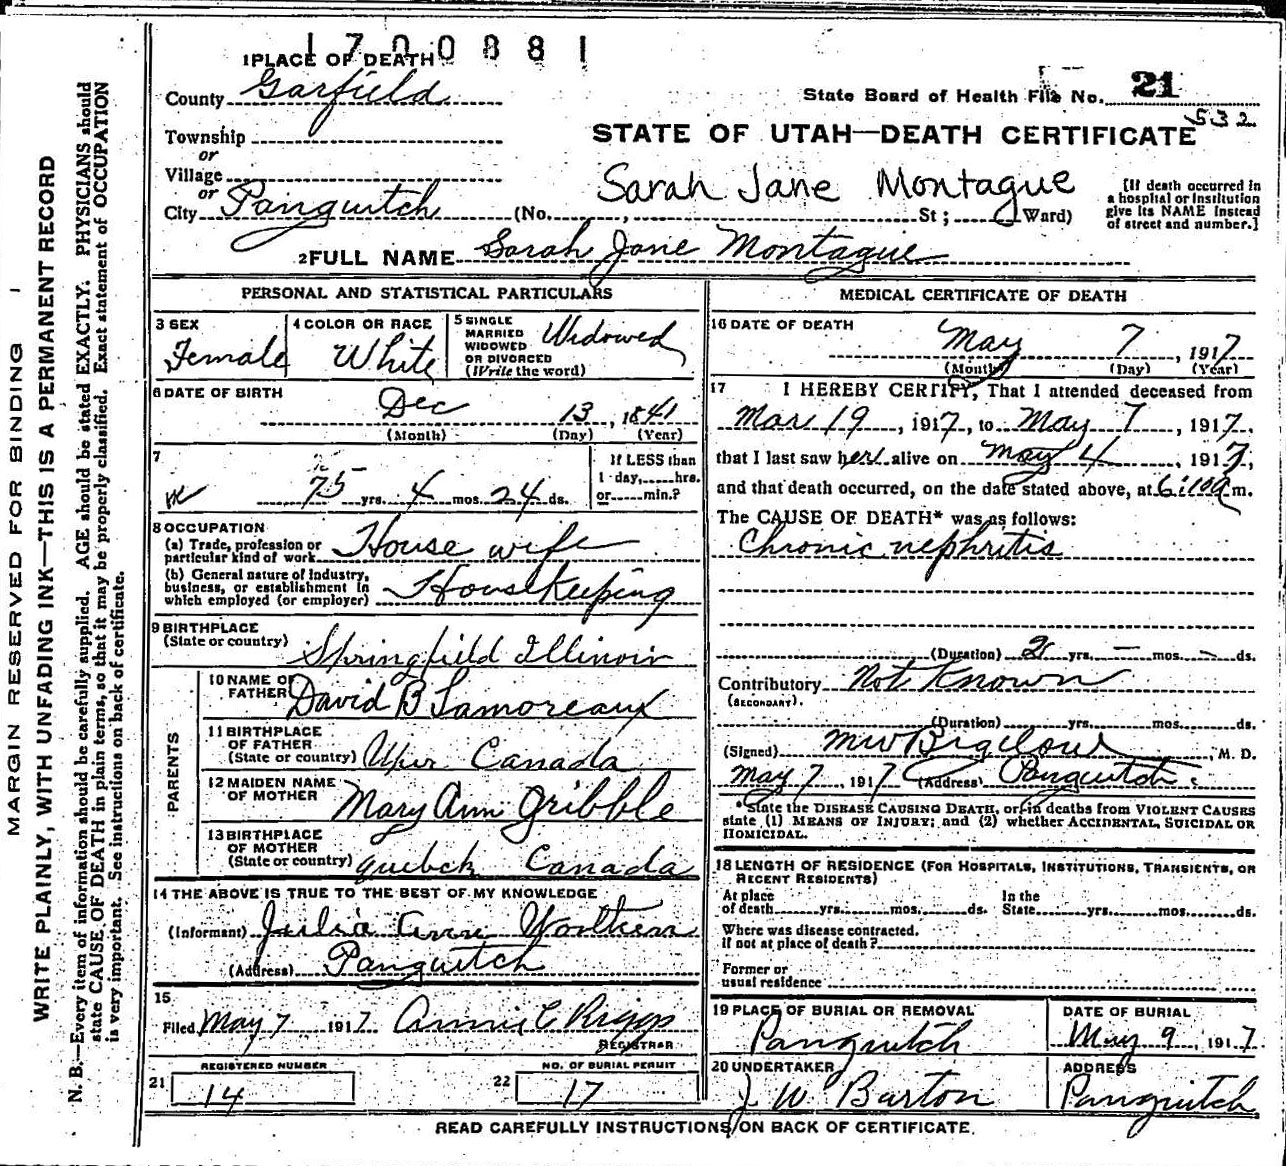 1700881
1 PLACE OF DEATH
County Garfield
Township
or
Village
or
City Panguitch (No. , St; Ward)
State Board of Health File No. 21
532
STATE OF UTAH—DEATH CERTIFICATE
Sarah Jane Montague
[If death occurred in
a hospital or institution
give its NAME instead
of street and number.]
2 FULL NAME Sarah Jane Montague
PERSONAL AND STATISTICAL PARTICULARS
3 SEX
Female
4 COLOR OR RACE
White
5 SINGLE
MARRIED
WIDOWED
OR DIVORCED
(Write the word)
Widowed
6 DATE OF BIRTH
Dec 13, 1841
(Month) (Day) (Year)
7
75 yrs. 4 mos. 24 ds.
If LESS than
1 day, hrs.
or min.?
8 OCCUPATION
(a) Trade, profession or
particular kind of work House wife
(b) General nature of industry,
business, or establishment in
which employed (or employer) Housekeeping
9 BIRTHPLACE
(State or country) Springfield Illinois
PARENTS
10 NAME OF
FATHER David B Lamoreaux
11 BIRTHPLACE
OF FATHER
(State or country) Uper Canada
12 MAIDEN NAME
OF MOTHER Mary Ann Gribble
13 BIRTHPLACE
OF MOTHER
(State or country) quebck Canada
14 THE ABOVE IS TRUE TO THE BEST OF MY KNOWLEDGE
(Informant) Julia Ann
(Address) Panguitch
15
Filed May 7 1917 Annie E Riggs
REGISTRAR
REGISTERED NUMBER
21 14
NO. OF BURIAL PERMIT
22 17
MEDICAL CERTIFICATE OF DEATH
16 DATE OF DEATH
May 7, 1917
(Month) (Day) (Year)
17 I HEREBY CERTIFY, That I attended deceased from
Mar 19, 1917, to May 7, 1917,
that I last saw her alive on May 4, 1917,
and that death occurred, on the date stated above, at 6:10a m.
The CAUSE OF DEATH* was as follows:
Chronic nephritis
(Duration) 2 yrs. — mos. — ds.
Contributory Not Known
(SECONDARY).
(Duration) yrs. mos. ds.
(Signed) MW Bigelow, M. D.
May 7, 1917 (Address) Panguitch
*State the DISEASE CAUSING DEATH, or, in deaths from VIOLENT CAUSES
state (1) MEANS OF INJURY; and (2) whether ACCIDENTAL, SUICIDAL OR
HOMICIDAL.
18 LENGTH OF RESIDENCE (FOR HOSPITALS, INSTITUTIONS, TRANSIENTS, OR
RECENT RESIDENTS)
At place
of death yrs. mos. ds.
In the
State yrs. mos. ds.
Where was disease contracted.
if not at place of death?
Former or
usual residence
19 PLACE OF BURIAL OR REMOVAL
Panguitch
DATE OF BURIAL
May 9, 1917.
20 UNDERTAKER
J. W Barton
ADDRESS
Panguitch
READ CAREFULLY INSTRUCTIONS ON BACK OF CERTIFICATE.
MARGIN RESERVED FOR BINDING
WRITE PLAINLY, WITH UNFADING INK—THIS IS A PERMANENT RECORD
N. B.—Every item of information should be carefully supplied. AGE should be stated EXACTLY. PHYSICIANS should
state CAUSE OF DEATH in plain terms, so that it may be properly classified. Exact statement of OCCUPATION
is very important. See instructions on back of certificate.